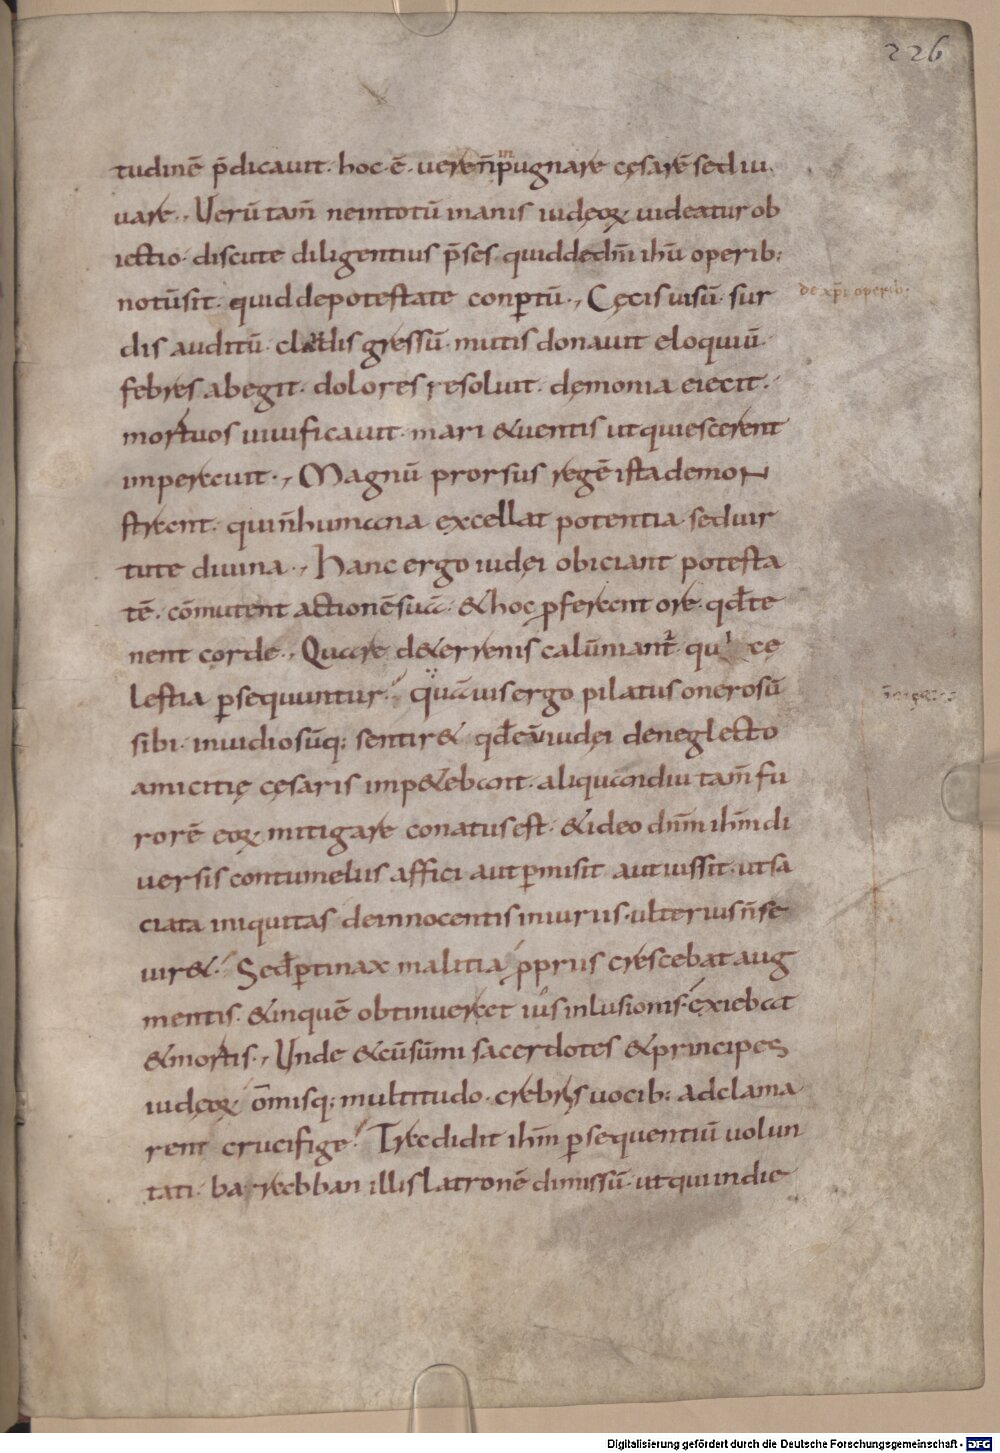 226
tudinē p̄dicauit· hoc·ē· uere n̄ inpugnare cęsarē sed iu
uare·, Uerū tam̄ ne intotū inanis iudęoꝝ uideatur ob
iectio· discute diligentius p̄ses· quid de dn̄i ihū operib;
notū sit· quid depotestate conꝑtū·, Cęcis uisū· sur
dis auditū· claudis gressū· mutis donauit eloquiū·
febres abegit· dolores resoluit· dęmonia eiecit·
mortuos uiuificauit· mari & uentis ut quiescerent
imperauit·, Magnū prorsus regē ista demon
strant· qui n̄ humana excellat potentia· sed uir
tute diuina·, Hanc ergo iudęi obiciant potesta
tē· cōmutent actionē suā· & hoc ꝓferant ore· qđ te
nent corde·, Quare de terrenis calūniantr̄ qui cę
lestia ꝑsequuntur· Quāuis ergo pilatus onerosū
sibi· inuidiosūq; sentir& qđ eū iudęi deneglecto
amicitię cęsaris imp&ebant· aliquandiu tam̄ fu
rorē eoꝝ mitigare conatus est· & ideo dn̄m ihm̄ di
uersis contumeliis affici aut ꝑmisit aut iussit· ut sa
ciata iniquitas de innocentis iniuriis· ulterius n̄ sę
uir&· Sed ꝑtinax malitia ꝓpriis crescebat aug
mentis· & inquē obtinuerat ius inlusionis· exiebat
& mortis·, Unde & cū sūmi sacerdotes & principes
iudęoꝝ omīsq; multitudo· crebris uocib; adclama
rent crucifige· Tradidit ihm̄ ꝑsequentiū uolun
tati· barabban illis latronē dimissū· ut qui in die
de xp̄i operib·
Digitalisierung gefördert durch die Deutsche Forschungsgemeinschaft - DFG